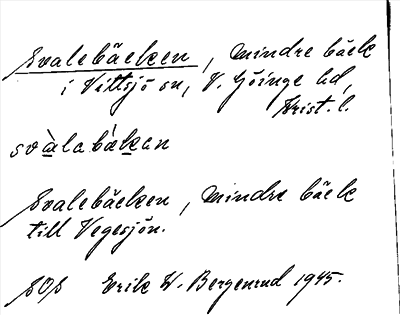 Svalebäcken, mindre bäck
i Vittsjö sn, V. Göinge hd,
Krist. l.
svàlabàkan
Svalebäcken, mindre bäck
till Vegesjön.
SOS Erik W. Bergenrud 1945.